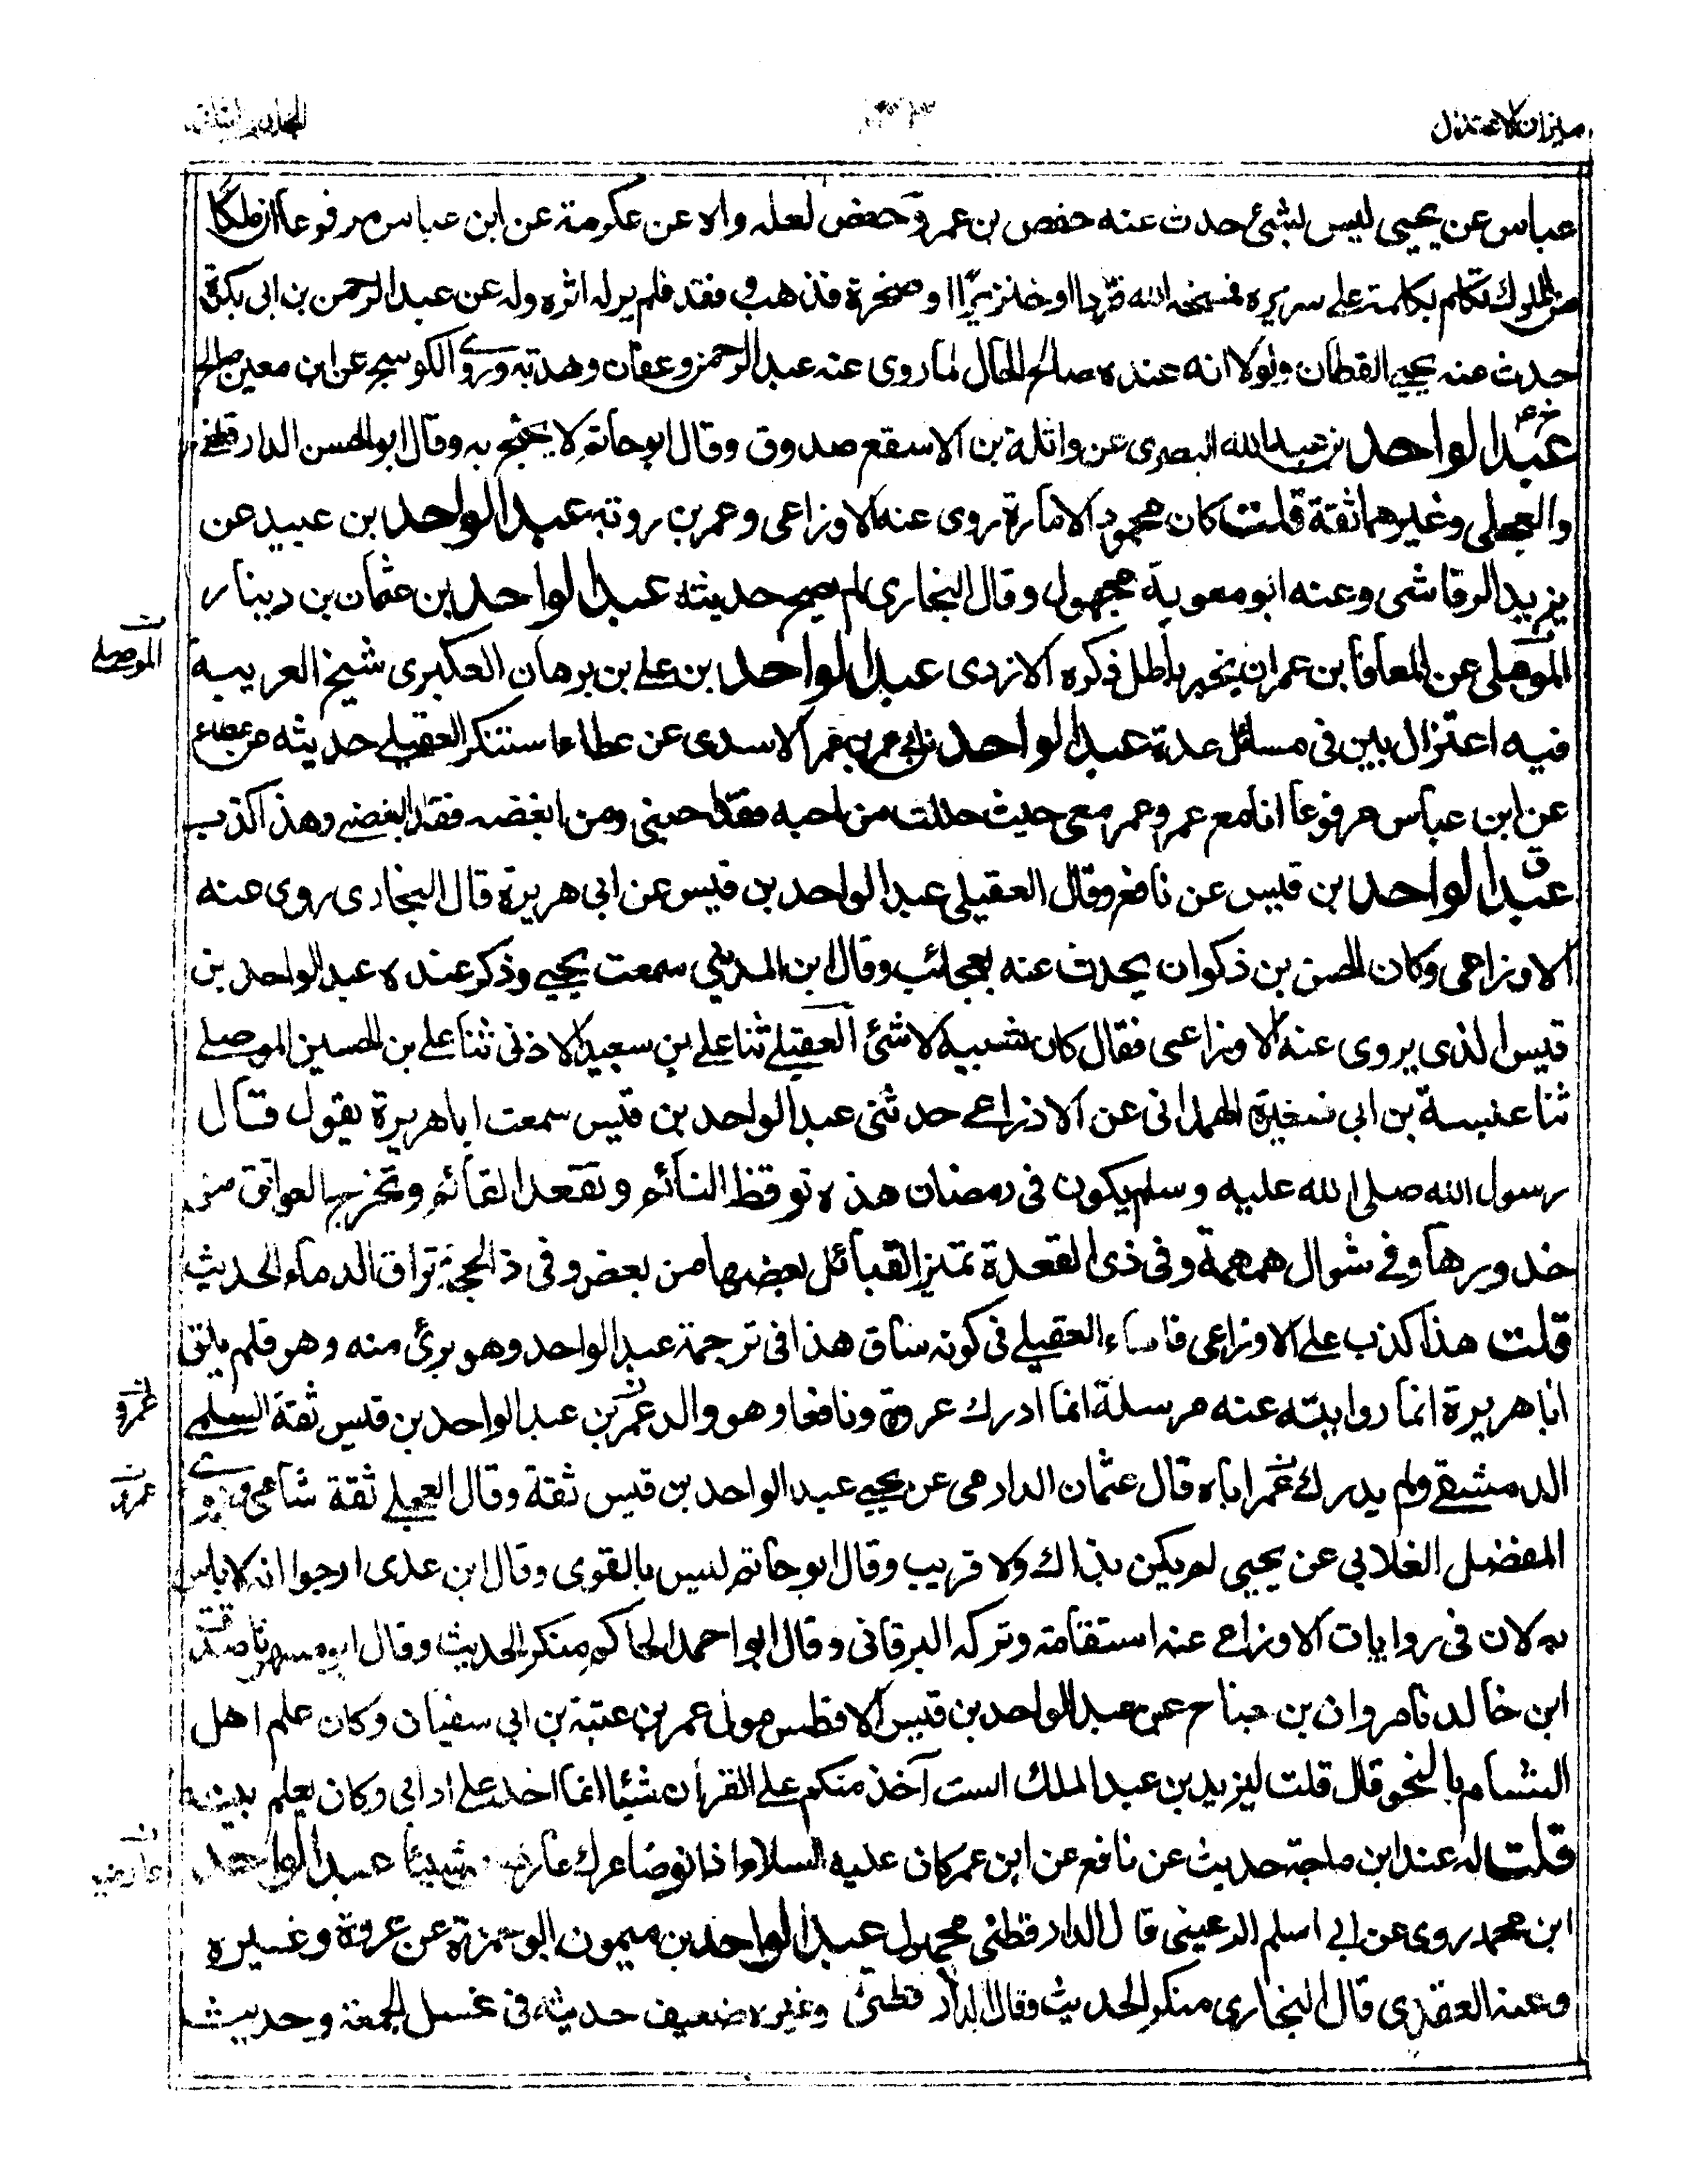 ميزان الاعتدال
المجلد الثاني
عباس عن يحيى ليس بشئ حدث عنه حفص بن عمرو حفص لعله واه عن عكرمة عن ابن عباس مرفوعا ان ملكا
من الملوك تكلم بكلمة على سريره فمسخه الله قردا او خنزيرا او صخرة فذهب وفقد فلم ير له اثره وله عن عبد الرحمن بن ابى بكرة
حدث عنه يحيى القطان ولولا انه عنده صالح الحال لما روى عنه عبد الرحمن وعفان وهدبة وروى الكوسج عن ابن معين صالح
عبد الواحد بن عبد الله البصرى عن واثلة بن الاسقع صدوق وقال ابو حاتم لا يحتج به وقال ابو الحسن الدارقطنى
والعجلى وغيرهما ثقة قلت كان محمود الامارة روى عنه الاوزاعى وعمر بن روبة عبد الواحد بن عبيد عن
يزيد الرقاشى وعنه ابو معوية مجهول وقال البخارى لم يصح حديثه عبد الواحد بن عثمان بن دينار
الموصلى عن المعافا بن عمران بخبر باطل ذكره الازدى عبد الواحد بن على بن برهان العكبرى شيخ العربية
الموصلى
فيه اعتزال بين فى مسائل عدة عبد الواحد بن ابى عمر الاسدى عن عطا استنكر العقيلى حديثه عن عطاء
عن ابن عباس مرفوعا انا مع عمر وعمر معى حيث حللت من احبه فقد احبنى ومن ابغضه فقد ابغضنى وهذا كذب
عبد الواحد بن قيس عن نافع وقال العقيلى عبد الواحد بن قيس عن ابى هريرة قال البخارى روى عنه
الاوزاعى وكان الحسن بن ذكوان يحدث عنه بعجائب وقال ابن المدينى سمعت يحيى وذكر عنده عبد الواحد بن
قيس الذى يروى عنه الاوزاعى فقال كان شبيه لا شئ العقيلى ثنا على بن سعيد الاذنى ثنا على بن الحسين الموصلى
ثنا عنبسة بن ابى صغيرة الهمدانى عن الاذراعى حدثنى عبد الواحد بن قيس سمعت ابا هريرة يقول قال
رسول الله صلى الله عليه وسلم يكون فى رمضان هذه توقظ النائم وتقعد القائم وتخرج العواتق من
خدورها وفى شوال همهمة وفى ذى القعدة تمتيز القبائل بعضها من بعض وفى ذالحجة تراق الدماء الحديث
قلت هذا كذب على الاوزاعى فاساء العقيلى فى كونه ساق هذا فى ترجمة عبد الواحد وهو برئ منه وهو فلم يلق
ابا هريرة انما روايته عنه مرسلة انما ادرك عروة ونافعا وهو والد عمر بن عبد الواحد بن قيس ثقة السلمى
عمرو
الدمشقى ولم يدرك عمر اباه قال عثمان الدارمى عن يحيى عبد الواحد بن قيس ثقة وقال العجلى ثقة شامى وروى
عمرو
المفضل الغلابى عن يحيى لم يكن بذاك ولا قريب وقال ابو حاتم ليس بالقوى وقال ابن عدى ارجوا انه لا باس
به لان فى روايات الاوزاعى عنه استقامة وتركه البرقانى وقال ابو احمد الحاكم منكر الحديث وقال ابو مسهر نا صدقة
ابن خالد نا مروان بن جناح عن عبد الواحد بن قيس الافطس مولى عمر بن عتبة بن ابى سفيان وكان علم اهل
الشام بالنحو قال قلت ليزيد بن عبد الملك لست آخذ منكم على القرأن شيئا انما اخذ على ادابى وكان يعلم بنيه
قلت له عند ابن ماجة حديث عن نافع عن ابن عمر كان عليه السلام اذا توضا عرك عارضيه شيئا عبد الواحد
عارضيه
ابن محمد روى عن ابى اسلم الرعينى قال الدارقطنى مجهول عبد الواحد بن ميمون ابو حمزة عن عروة وغيره
وعنه العقدى قال البخارى منكر الحديث وقال الدارقطنى وغيره ضعيف حديثه فى غسل الجمعة وحديث